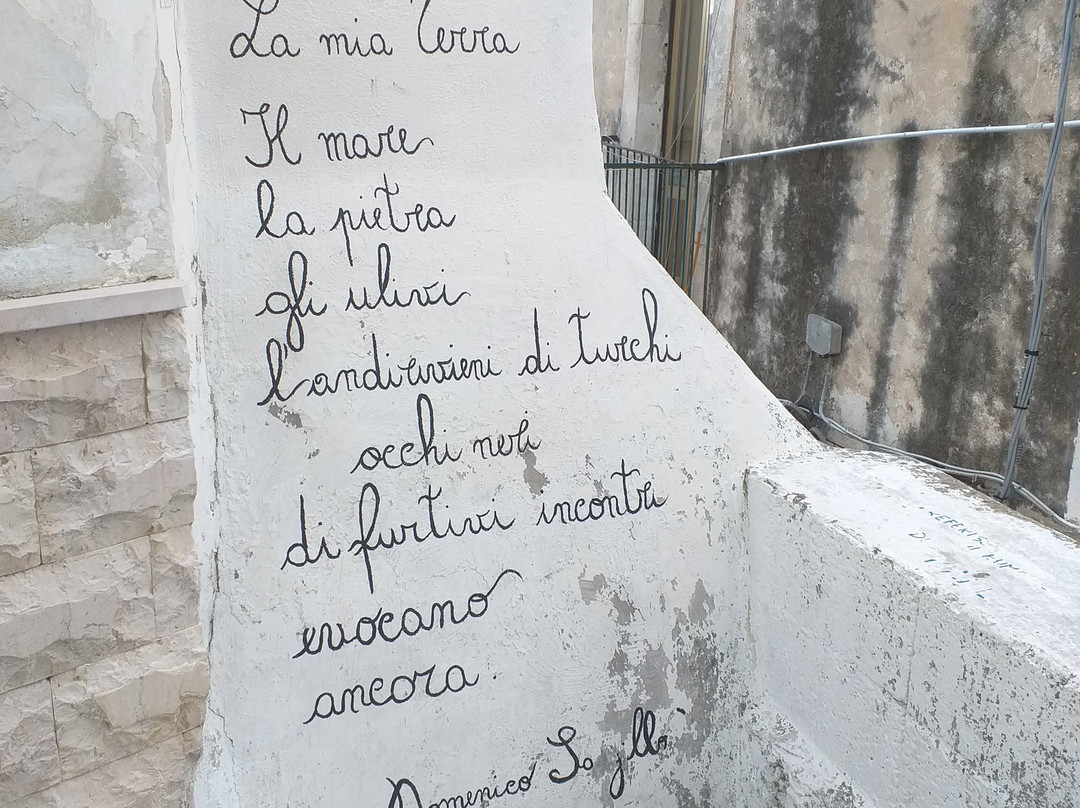 La mia Terra
Il mare
la pietra
gli ulivi
l'andirivieni di turchi
occhi neri
di furtivi incontri
evocano
ancora.
Domenico
DI